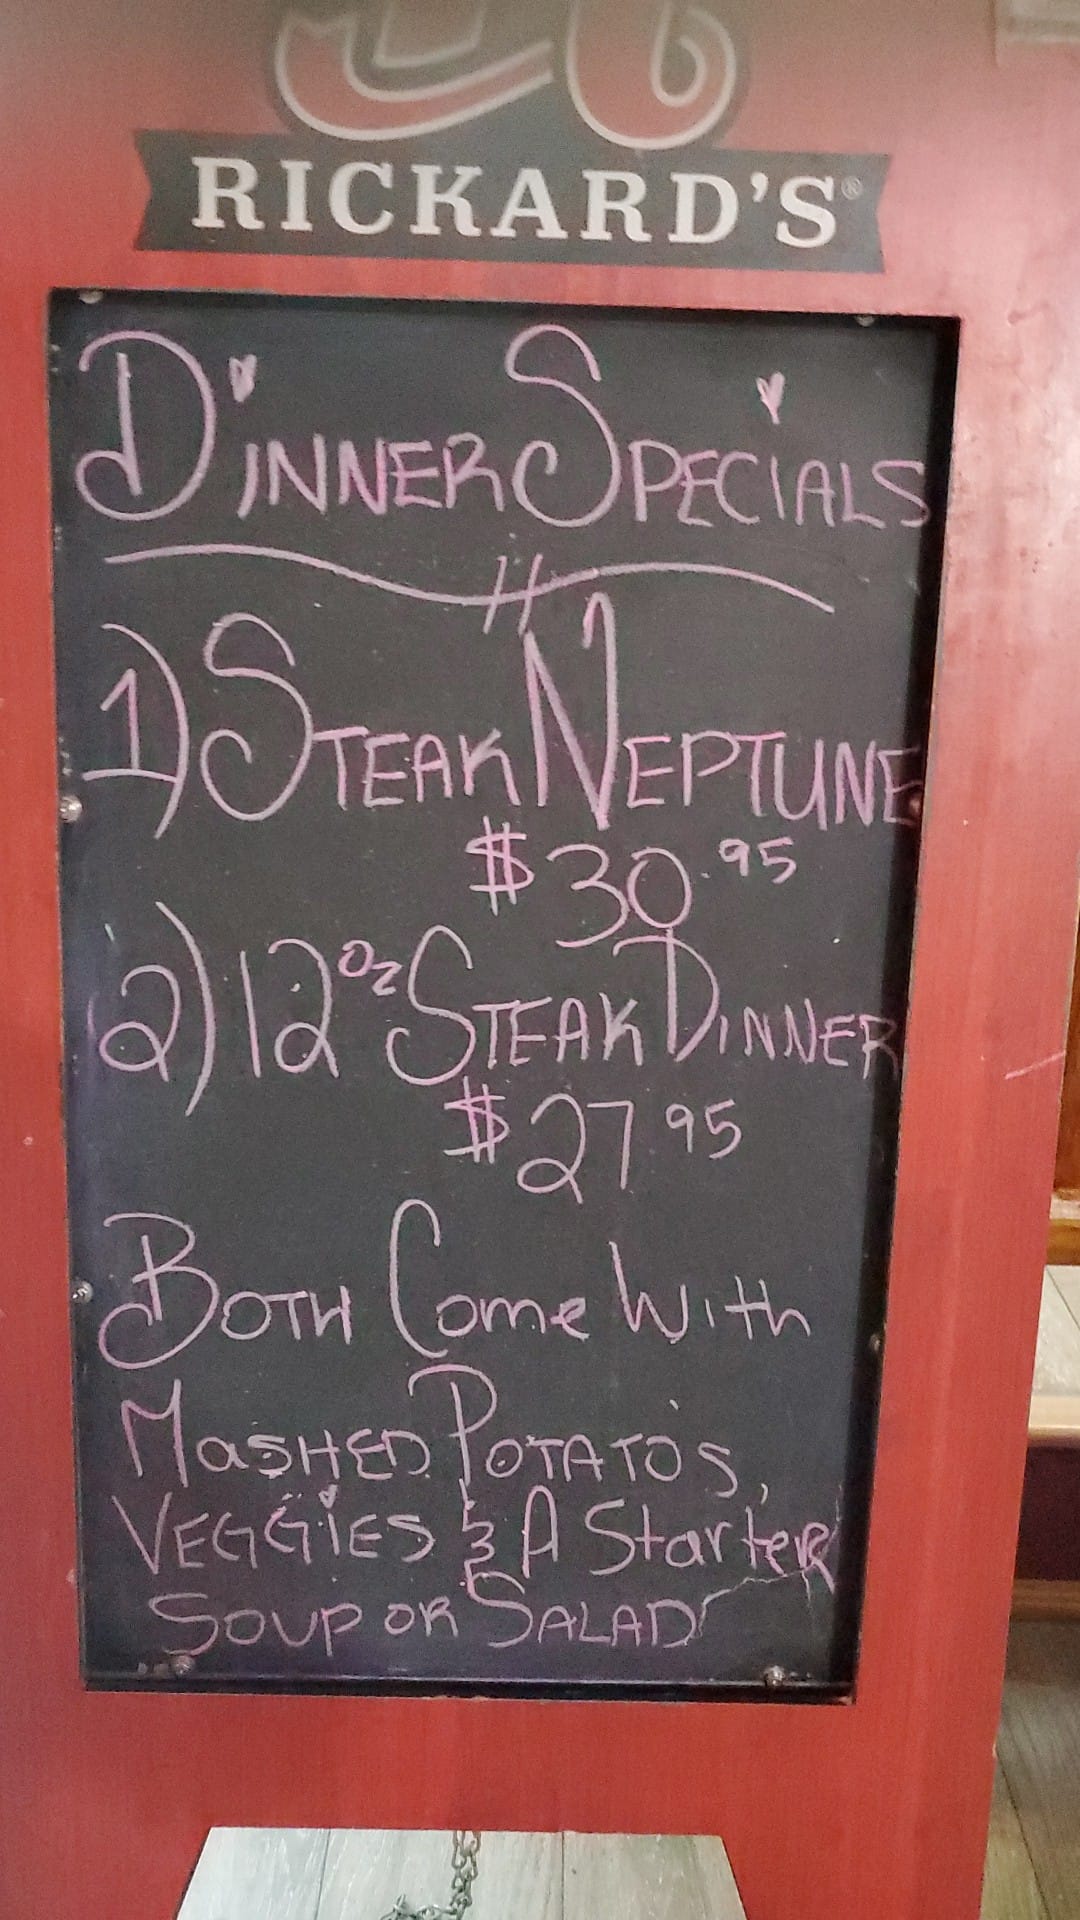 RICKARD'S®
DINNER SPECIALS
1) STEAK NEPTUNE
$30.95
2) 12 oz STEAK DINNER
$27 95
BOTH COME WITH
MASHED POTATO'S,
VEGGIES & A Starter
SOUP OR SALAD